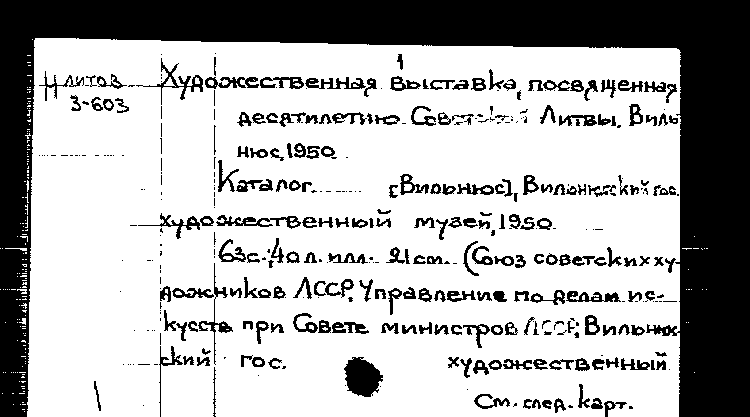 Н литов
3-603
Художественная выставка, посвященная
десятилетию Советской Литвы. Виль-
нюс, 1950.
Каталог. [Вильнюс], Вильнюсский гос.
художественный музей, 1950.
63с.; 40 л. илл. 21 см. (Союз советских ху-
дожников ЛССР, Управление по делам ис-
кусств при Совете министров ЛССР, Вильнюс-
ский гос. художественный
См. след. карт.